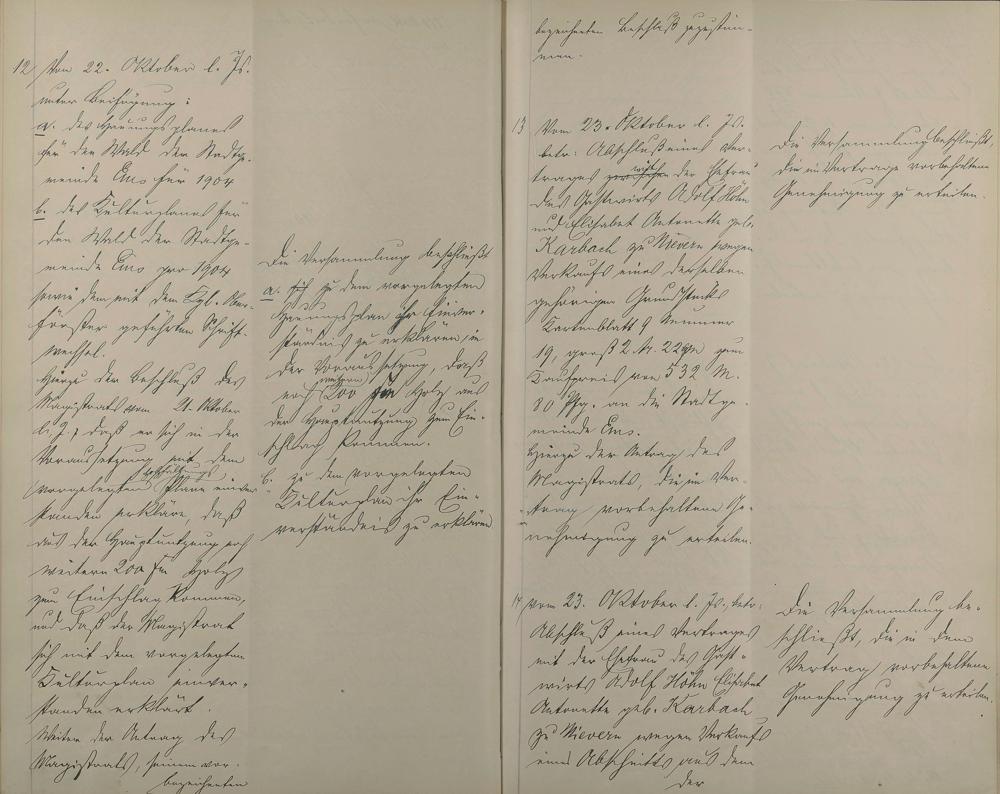 12) Vom 22. Oktober l. Js.
unter Beifügung:
a. des Hauungsplanes
für den Wald der Stadtge-
meinde Ems für 1904
b. des Kulturplanes für
den Wald der Stadtge-
meinde Ems pro 1904
sowie dem mit dem Kgl. Ober-
förster geführten Schrift-
wechsel.
Hierzu der Beschluß des
Magistrats vom 21. Oktober
l. J., daß er sich in der
Voraussetzung mit dem
vorgelegten Plane einver-
standen erkläre, daß
aus der Hauptnutzung noch
weitern 200 fm Holz
zum Einschlag kommen,
und daß der Magistrat
sich mit dem vorgelegten
Kulturplan einver-
standen erklärt.
Weiter der Antrag des
Magistrats, seinem vor-
bezeichneten
Die Versammlung beschließt
a. zu dem vorgelegten
Hauungsplan ihr Einver-
ständnis zu erklären, in
der Voraussetzung, daß
noch weitern 200 fm Holz aus
der Hauptnutzung zum Ein-
schlag kommen.
b. zu dem vorgelegten
Kulturplan ihr Ein-
verständnis zu erklären
bezeichneten Beschluß zuzustim-
men.
13 Vom 23. Oktober l. Js.
betr: Abschluß eines Ver-
trages zwischen der Ehefrau
des Gastwirts Adolf Höhn
und Elisabet Antonette geb.
Karbach zu Nievern wegen
Verkaufs eines derselben
gehörigen Grundstücks
Kartenblatt 9 Nummer
19, groß 2 Ar. 22 qm zum
Kaufpreis von 532 M.
80 Pfg. an die Stadtge-
meinde Ems.
Hierzu der Antrag des
Magistrats, die im Ver-
trag vorbehaltene Ge-
nehmigung zu erteilen.
Die Versammlung beschließt,
die im Vertrage vorbehaltene
Genehmigung zu erteilen.
14 Vom 23. Oktober l. Js., betr:
Abschluß eines Vertrages
mit der Ehefrau des Gast-
wirts Adolf Höhn Elisabet
Antonette geb. Karbach
zu Nievern wegen Verkaufs
eines Abschnitts aus dem
der
Die Versammlung be-
schließt, die in dem
Vertrag vorbehaltene
Genehmigung zu erteilen.